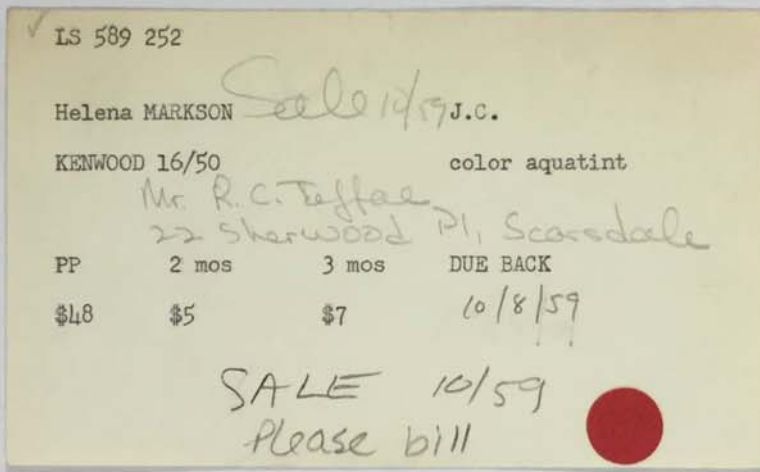 LS 589 252
Helena MARKSON Sale 10/59 J.C.
KENWOOD 16/50 color aquatint
Mr. R. C. Teffae
22 Sherwood Pl, Scarsdale
PP 2 mos 3 mos DUE BACK
$48 $5 $7 10/8/59
SALE 10/59
Please bill